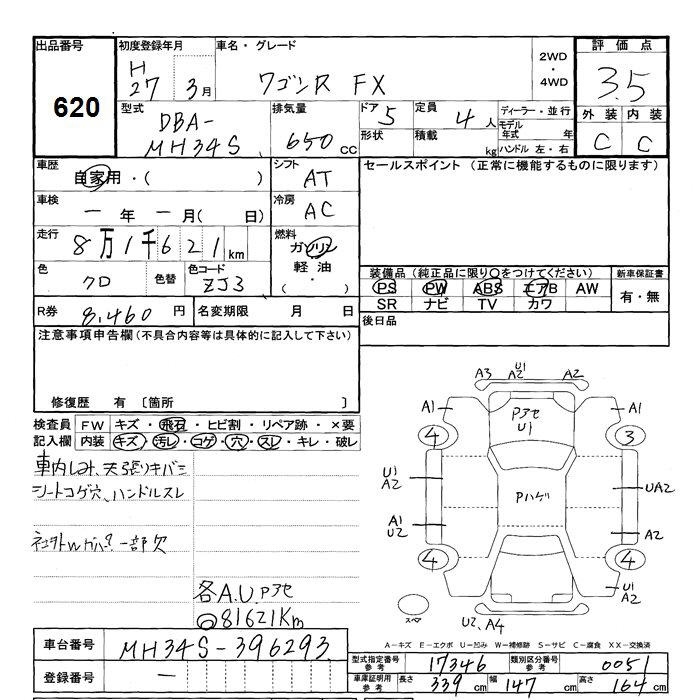 出品番号 初度登録年月 車名・グレード 2WD・4WD 評価点
620 H27 3月 ワゴンR FX 3.5
型式 DBA-MH34S 排気量 650cc ドア 5 定員 4人 ディーラー・並行 外装 内装
形状 積載 kg モデル年式 年 C C
ハンドル 左・右
車歴 自家用・( ) シフト AT セールスポイント (正常に機能するものに限ります)
車検 一年一月( 日) 冷房 AC
走行 8万1千621km 燃料 ガソリン
軽油・
色 クロ 色替 色コード ZJ3 装備品 (純正品に限り○をつけてください) 新車保証書
PS PW ABS エアB AW 有・無
SR ナビ TV カワ
R券 8,460円 名変期限 月 日 後日品
注意事項申告欄 (不具合内容等は具体的に記入して下さい)
修復歴 有 〔箇所 〕
検査員 FW キズ・飛石・ヒビ割・リペア跡・×要
記入欄 内装 キズ・汚レ・コゲ・穴・スレ・キレ・破レ
車内しみ、天張りキバミ
シートコゲ穴、ハンドルスレ
一部欠
各A.U.Pアセ
81621Km
A3 U1 A2 A2
A1 Pアセ U1 A1
4 3
U1 A2 Pハゲ UA2
A1 U2 A2
4 4
U1 A2
スペア U2、A4
車台番号 MH34S-396293
A-キズ E-エクボ U-凹み W-補修跡 S-サビ C-腐食 XX-交換済
型式指定番号 参考 17346 類別区分番号 参考 0051
登録番号 一 車庫証明用 参考 長さ 339cm 幅 147cm 高さ 164cm